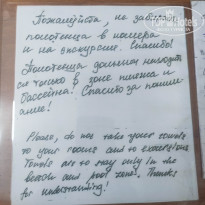 Пожалуйста, не забирайте
полотенца в номера
и на экскурсии. Спасибо!
Полотенца должны находит
ся только в зоне пляжа и
бассейна. Спасибо за понима
ание!
Please, do not take your towels
to your rooms and to excursions
Towels are to stay only in the
beach and pool zone. Thanks
for understanding!